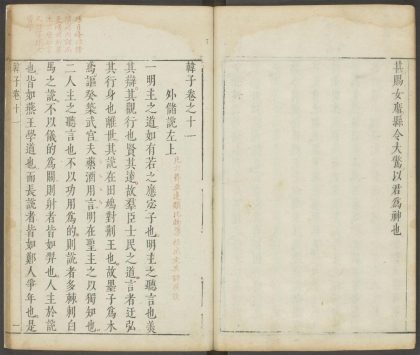 甚賜女廱縣令大驚以君為神也
韓子卷之十一
外儲說左上
一明主之道如有若之應宓子也明主之聽言也美
其辯其觀行也賢其遠故羣臣士民之道言者迂弘
其行身也離世其說在田鳩對荆王也故墨子為木
鳶謳癸築武宮夫藥酒用言明在聖主之以獨知也
二人主之聽言也不以功用為的則說者多棘刺白
馬之說不以儀的為關則射者皆如羿也人主於說
也皆如燕王學道也而長說者皆如鄭人爭年也是
韓子卷十一
一